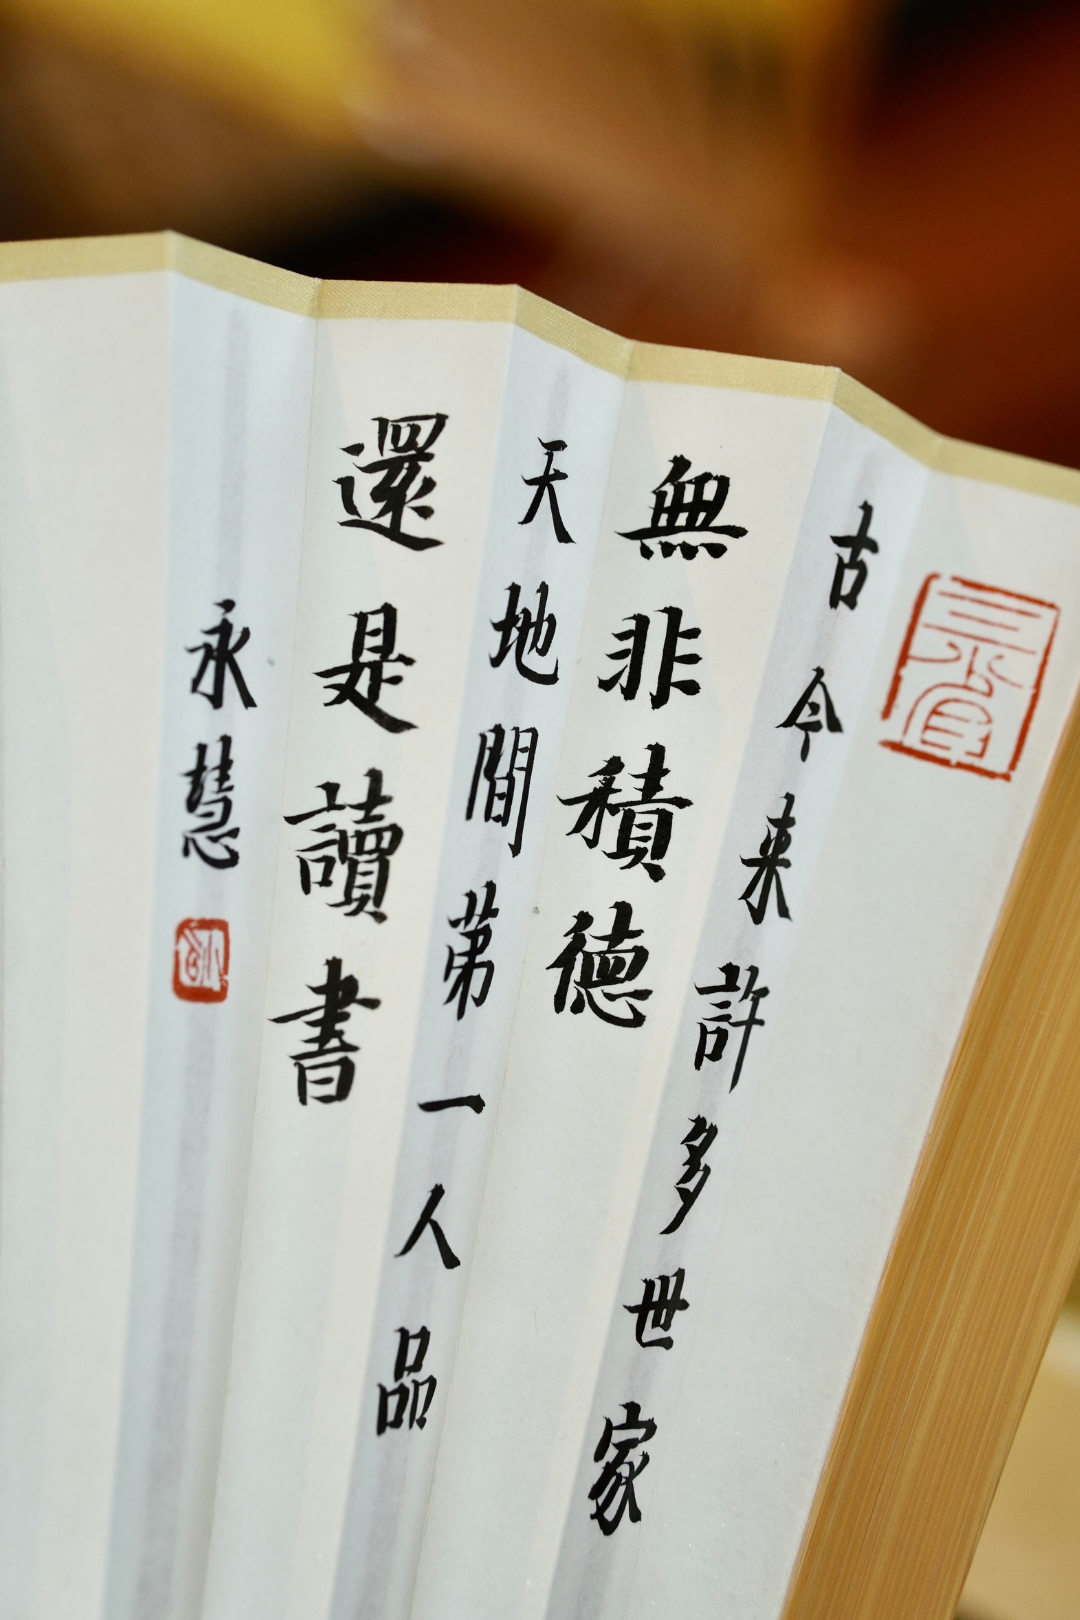 古今来許多世家
無非積德
天地間苐一人品
還是讀書
永慧